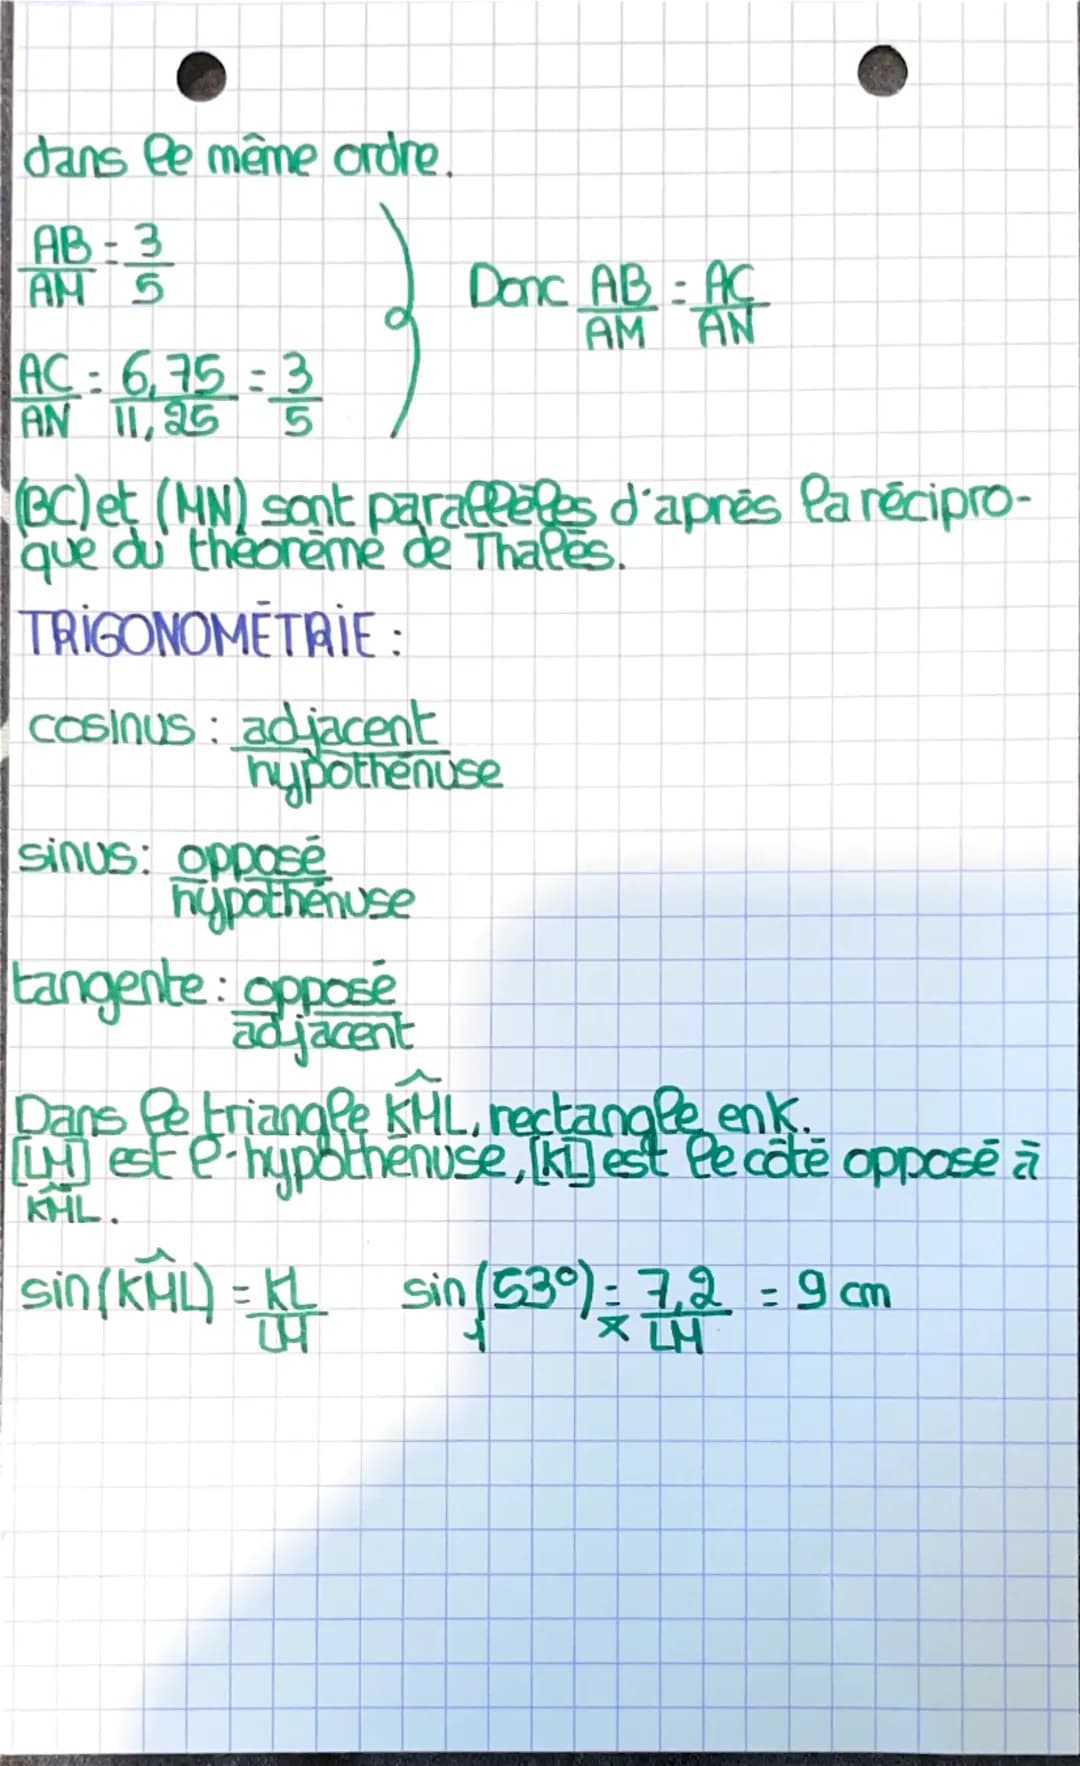 dans le même ordre.
AB/AM = 3/5
Donc AB/AM = AC/AN
AC/AN = 6,75/11,25 = 3/5
(BC) et (MN) sont parallèles d'après la récipro-
que du théorème de Thalès.
TRIGONOMÉTRIE :
cosinus : adjacent/hypothénuse
sinus : opposé/hypothénuse
tangente : opposé/adjacent
Dans le triangle K̂ML, rectangle en k.
[LM] est l'hypothénuse, [KL] est le côté opposé à
K̂ML.
sin(K̂ML) = KL/LM sin(53°)/1 =× 7,2/LM = 9 cm